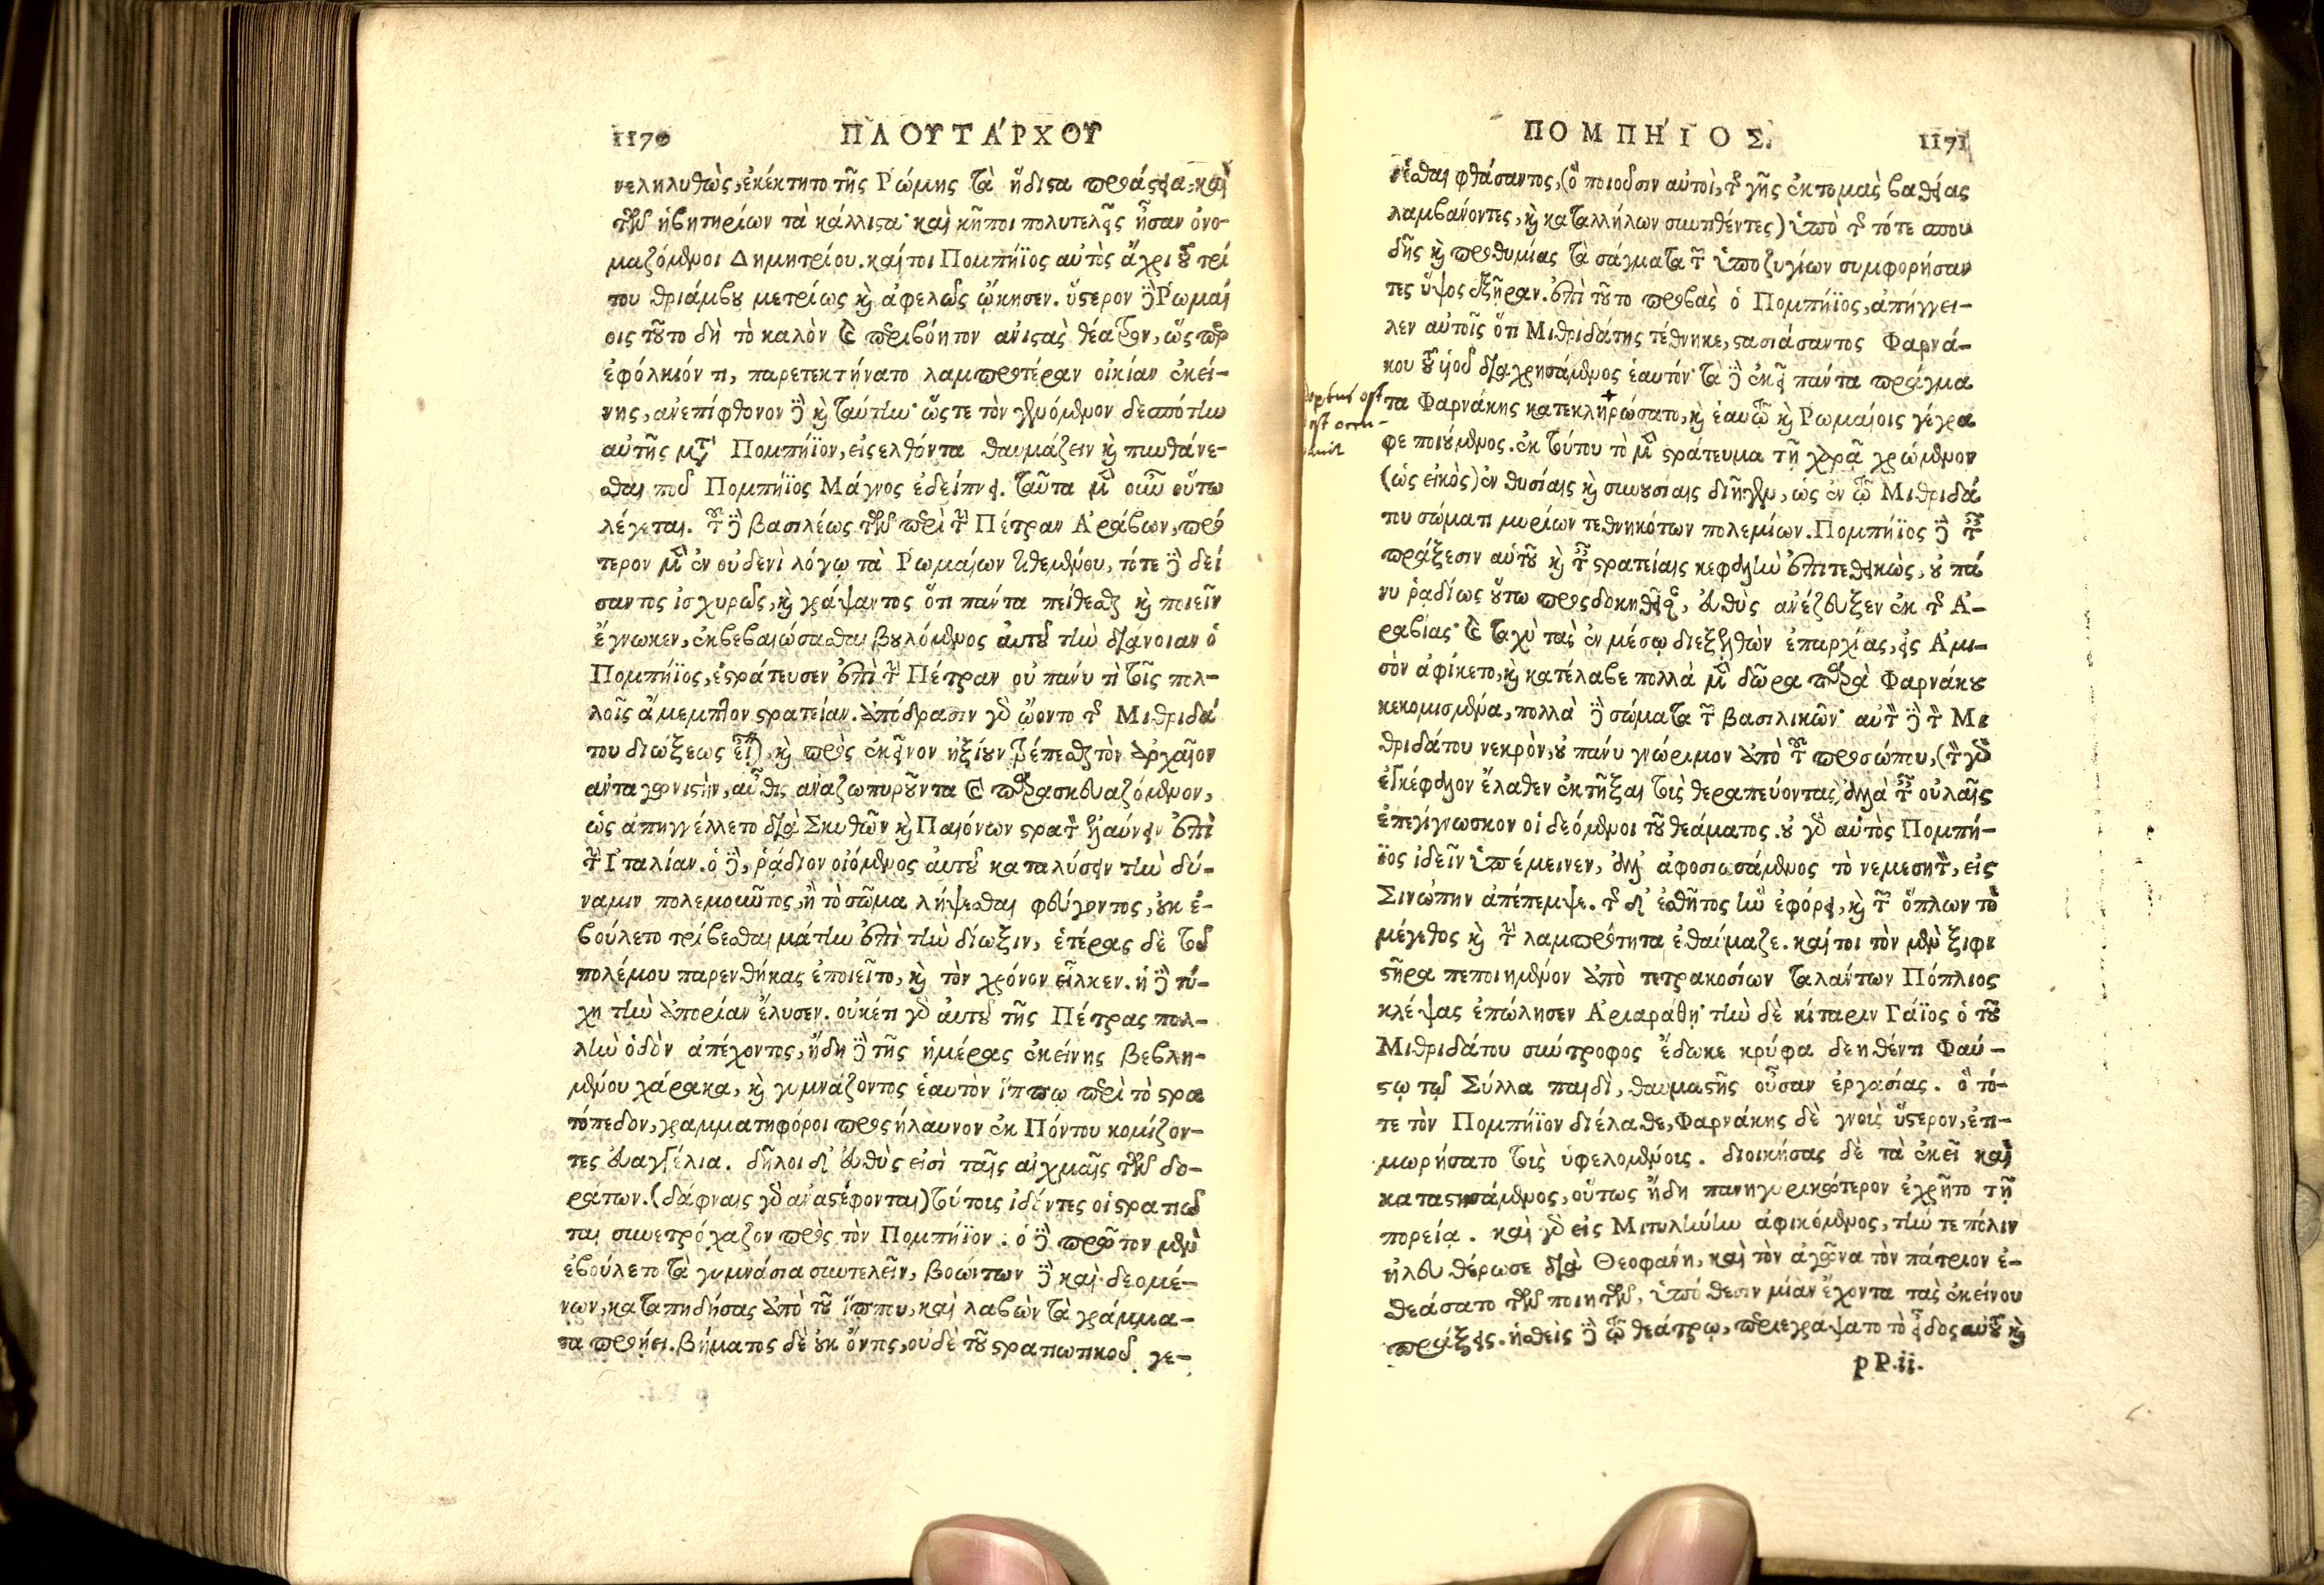 1170 ΠΛΟΥΤΑΡΧΟΥ
νεληλυθὼς, ἐκέκτητο τῆς Ῥώμης τὰ ἥδιστα προάστεια, καὶ
τῶν ἡβητηρίων τὰ κάλλιστα· καὶ κῆποι πολυτελεῖς ἦσαν ὀνο-
μαζόμενοι Δημητρίου. καίτοι Πομπήϊος αὐτὸς ἄχρι τοῦ τρί
του θριάμβου μετρίως καὶ ἀφελῶς ᾤκησεν. ὕστερον δὲ Ῥωμαί
οις τοῦτο δὴ τὸ καλὸν καὶ περιβόητον ἀνιστὰς θέατρον, ὥσπερ
ἐφόλκιόν τι, παρετεκτήνατο λαμπροτέραν οἰκίαν ἐκεί-
νης, ἀνεπίφθονον δὲ καὶ ταύτην· ὥστε τὸν γενόμενον δεσπότην
αὐτῆς μετὰ Πομπήϊον, εἰσελθόντα θαυμάζειν καὶ πυνθάνε-
σθαι ποῦ Πομπήϊος Μάγνος ἐδείπνει. ταῦτα μὲν οὖν οὕτω
λέγεται. τοῦ δὲ βασιλέως τῶν περὶ τὴν Πέτραν Ἀράβων, πρό
τερον μὲν ἐν οὐδενὶ λόγῳ τὰ Ῥωμαίων τιθεμένου, τότε δὲ δεί
σαντος ἰσχυρῶς, καὶ γράψαντος ὅτι πάντα πείθεσθαι καὶ ποιεῖν
ἔγνωκεν, ἐκβεβαιώσασθαι βουλόμενος αὐτοῦ τὴν διάνοιαν ὁ
Πομπήϊος, ἐστράτευσεν ἐπὶ τὴν Πέτραν οὐ πάνυ τι τοῖς πολ-
λοῖς ἄμεμπτον στρατείαν. ἀπόδρασιν γὰρ ᾤοντο τῆς Μιθριδά
του διώξεως εἶναι, καὶ πρὸς ἐκεῖνον ἠξίουν τρέπεσθαι τὸν ἀρχαῖον
ἀνταγωνιστὴν, αὖθις ἀναζωπυροῦντα καὶ παρασκευαζόμενον,
ὡς ἀπηγγέλλετο διὰ Σκυθῶν καὶ Παιόνων στρατὸν ἐλαύνειν ἐπὶ
τὴν Ἰταλίαν. ὁ δὲ, ῥᾴδιον οἰόμενος αὐτοῦ καταλύσειν τὴν δύ-
ναμιν πολεμοῦντος, ἢ τὸ σῶμα λήψεσθαι φεύγοντος, οὐκ ἐ-
βούλετο τρίβεσθαι μάτην ἐπὶ τὴν δίωξιν, ἑτέρας δὲ τοῦ
πολέμου παρενθήκας ἐποιεῖτο, καὶ τὸν χρόνον εἷλκεν. ἡ δὲ τύ-
χη τὴν ἀπορίαν ἔλυσεν. οὐκέτι γὰρ αὐτοῦ τῆς Πέτρας πολ-
λὴν ὁδὸν ἀπέχοντος, ἤδη δὲ τῆς ἡμέρας ἐκείνης βεβλη-
μένου χάρακα, καὶ γυμνάζοντος ἑαυτὸν ἵππῳ περὶ τὸ στρα
τόπεδον, γραμματηφόροι προσήλαυνον ἐκ Πόντου κομίζον-
τες εὐαγγέλια. δῆλοι δ' εὐθὺς εἰσὶ ταῖς αἰχμαῖς τῶν δο-
ράτων. (δάφναις γὰρ ἀναστέφονται) τούτοις ἰδόντες οἱ στρατιῶ
ται συνετρόχαζον πρὸς τὸν Πομπήϊον. ὁ δὲ πρῶτον μὲν
ἐβούλετο τὰ γυμνάσια συντελεῖν, βοώντων δὲ καὶ δεομέ-
νων, καταπηδήσας ἀπὸ τοῦ ἵππου, καὶ λαβὼν τὰ γράμμα-
τα προῄει. βήματος δὲ οὐκ ὄντος, οὐδὲ τοῦ στρατιωτικοῦ γε-
ΠΟΜΠΗΙΟΣ. 1171
νέσθαι φθάσαντος, (ὃ ποιοῦσιν αὐτοὶ, τῆς γῆς ἐκτομὰς βαθείας
λαμβάνοντες, καὶ καταλλήλων συντιθέντες) ὑπὸ τῆς τότε σπου
δῆς καὶ προθυμίας τὰ σάγματα τῶν ὑποζυγίων συμφορήσαν
τες ὕψος ἐξῆραν. ἐπὶ τοῦτο προβὰς ὁ Πομπήϊος, ἀπήγγει-
λεν αὐτοῖς ὅτι Μιθριδάτης τέθνηκε, στασιάσαντος Φαρνά-
κου τοῦ υἱοῦ διαχρησάμενος ἑαυτόν· τὰ δὲ ἐκεῖ πάντα πράγμα
τα Φαρνάκης κατεκληρώσατο, καὶ ἑαυτῷ καὶ Ῥωμαίοις γέγρα
φε ποιούμενος. ἐκ τούτου τὸ μὲν στράτευμα τῇ χαρᾷ χρώμενον
(ὡς εἰκὸς) ἐν θυσίαις καὶ συνουσίαις διῆγεν, ὡς ἐν τῷ Μιθριδά
του σώματι μυρίων τεθνηκότων πολεμίων. Πομπήϊος δὲ ταῖς
πράξεσιν αὐτοῦ καὶ ταῖς στρατείαις κεφαλὴν ἐπιτεθεικὼς, οὐ πά
νυ ῥᾳδίως οὕτω προσδοκηθεῖσαν, εὐθὺς ἀνέζευξεν ἐκ τῆς Ἀ-
ραβίας· καὶ ταχὺ τὰς ἐν μέσῳ διεξελθὼν ἐπαρχίας, εἰς Ἀμι-
σὸν ἀφίκετο, καὶ κατέλαβε πολλὰ μὲν δῶρα παρὰ Φαρνάκου
κεκομισμένα, πολλὰ δὲ σώματα τῶν βασιλικῶν· αὐτὸν δὲ τὸν Μι
θριδάτου νεκρὸν, οὐ πάνυ γνώριμον ἀπὸ τοῦ προσώπου, (τὸν γὰρ
ἐγκέφαλον ἔλαθεν ἐκτῆξαι τοὺς θεραπεύοντας) ἀλλὰ ταῖς οὐλαῖς
ἐπεγίγνωσκον οἱ δεόμενοι τοῦ θεάματος. οὐ γὰρ αὐτὸς Πομπή-
ϊος ἰδεῖν ὑπέμεινεν, ἀλλ' ἀφοσιωσάμενος τὸ νεμεσητὸν, εἰς
Σινώπην ἀπέπεμψε. τῆς δ' ἐσθῆτος ἣν ἐφόρει, καὶ τῶν ὅπλων τὸ
μέγεθος καὶ τὴν λαμπρότητα ἐθαύμαζε. καίτοι τὸν μὲν ξιφι
στῆρα πεποιημένον ἀπὸ τετρακοσίων ταλάντων Πόπλιος
κλέψας ἐπώλησεν Ἀριαράθῃ· τὴν δὲ κίταριν Γάϊος ὁ τοῦ
Μιθριδάτου σύντροφος ἔδωκε κρύφα δεηθέντι Φαύ-
στῳ τῷ Σύλλα παιδὶ, θαυμαστῆς οὖσαν ἐργασίας. ὃ τό-
τε τὸν Πομπήϊον διέλαθε, Φαρνάκης δὲ γνοὺς ὕστερον, ἐτι-
μωρήσατο τοὺς ὑφελομένους. διοικήσας δὲ τὰ ἐκεῖ καὶ
καταστησάμενος, οὕτως ἤδη πανηγυρικώτερον ἐχρῆτο τῇ
πορείᾳ. καὶ γὰρ εἰς Μιτυλήνην ἀφικόμενος, τήν τε πόλιν
ἠλευθέρωσε διὰ Θεοφάνη, καὶ τὸν ἀγῶνα τὸν πάτριον ἐ-
θεάσατο τῶν ποιητῶν, ὑπόθεσιν μίαν ἔχοντα τὰς ἐκείνου
πράξεις. ἡσθεὶς δὲ τῷ θεάτρῳ, περιεγράψατο τὸ εἶδος αὐτοῦ καὶ
pP.ii.